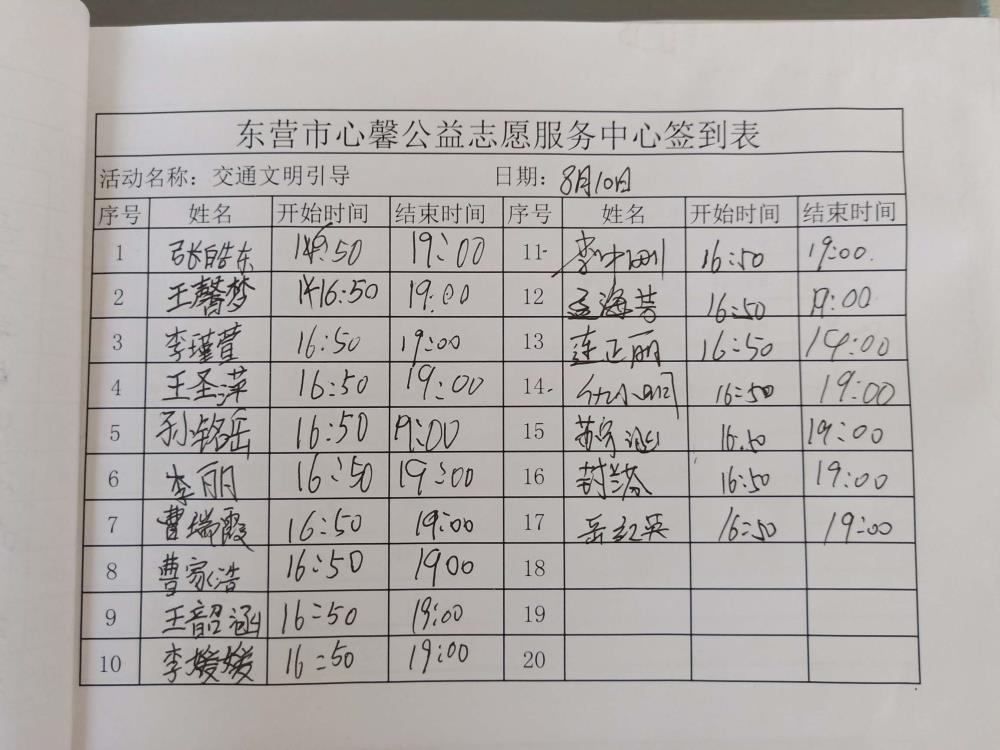 东营市心馨公益志愿服务中心签到表
活动名称：交通文明引导 日期：8月10日
序号 姓名 开始时间 结束时间 序号 姓名 开始时间 结束时间
1 张皓东 16:50 19:00 11 李中刚 16:50 19:00
2 王馨梦 16:50 19:00 12 孟海芳 16:50 19:00
3 李瑾萱 16:50 19:00 13 连正丽 16:50 19:00
4 王圣萍 16:50 19:00 14 16:50 19:00
5 孙铭岳 16:50 19:00 15 苏家涵 16:50 19:00
6 李丽 16:50 19:00 16 16:50 19:00
7 曹瑞霞 16:50 19:00 17 岳红英 16:50 19:00
8 曹家浩 16:50 1900 18
9 王韶涵 16:50 19:00 19
10 李媛媛 16:50 19:00 20